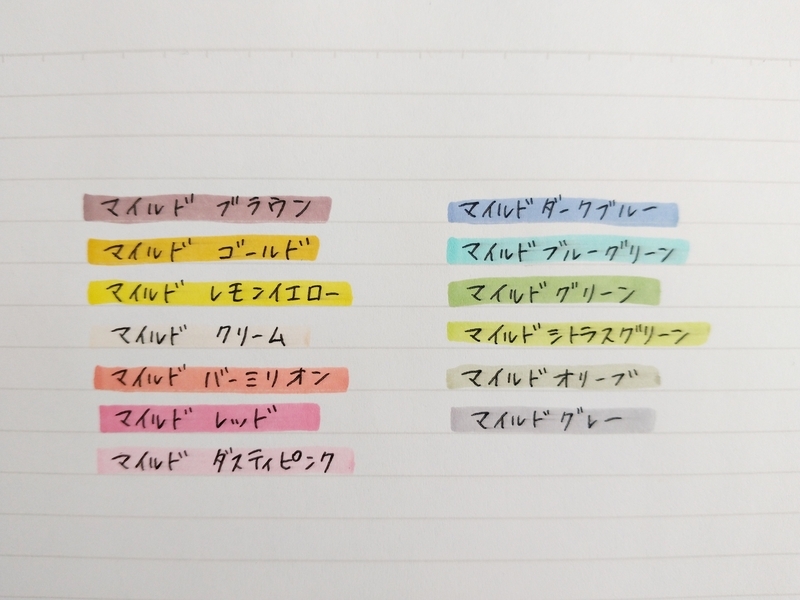 マイルド ブラウン
マイルド ゴールド
マイルド レモンイエロー
マイルド クリーム
マイルド バーミリオン
マイルド レッド
マイルド ダスティピンク
マイルドダークブルー
マイルドブルーグリーン
マイルドグリーン
マイルドシトラスグリーン
マイルドオリーブ
マイルドグレー